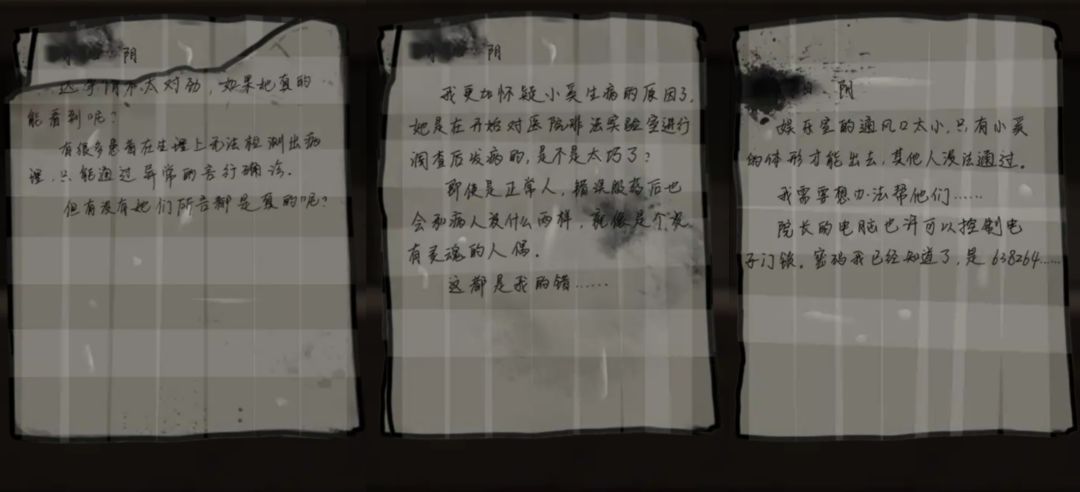 阴
这事情不太对劲，如果她真的
能看到呢？
有很多患者在生理上无法检测出病
理，只能通过异常的言行确诊。
但有没有她们所言都是真的呢？
阴
我更加怀疑小奚生病的原因了，
她是在开始对医院非法实验室进行
调查后发病的，是不是太巧了？
即使是正常人，错误服药后也
会和病人没什么两样，就像是个没
有灵魂的人偶。
这都是我的错……
阴
娱乐室的通风口太小，只有小奚
的体形才能出去，其他人没法通过。
我需要想办法帮他们……
院长的电脑也许可以控制电
子门锁。密码我已经知道了，是638264……